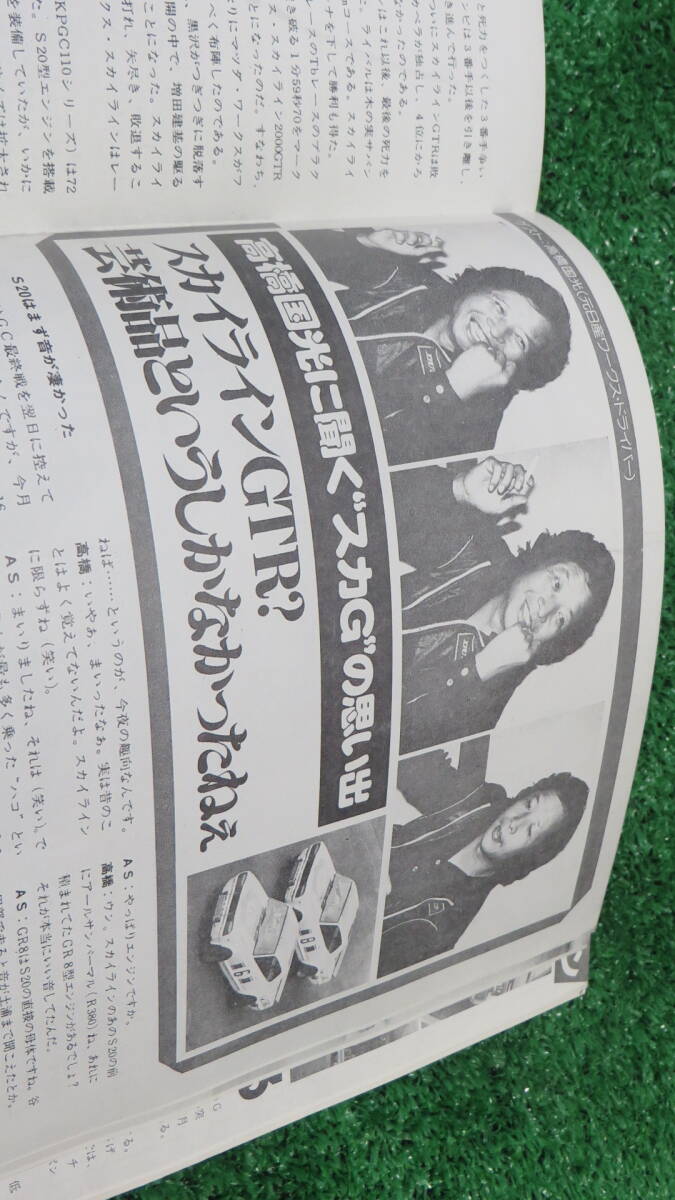 と死力をつくした3番手争い
ンビは3番手以後を引き離し、
き進んで行った。
ついにスカイラインGTRは敗
カペラが独占し、4位にかろ
なかったのである。
ンはこれ以後、最後の死力を
に、ライバルは木の実サバン
mコースである。スカイライ
ナを下して勝利も得た。
レースのTbレースのプラク
を破る1分59秒70をマーク
ス・スカイライン2000GTR
とになったのだ。すなわち、
りにマツダ・ワークスがフ
べく布陣したのである。
、黒沢がつぎつぎに脱落す
開の中で、増田建基の駆る
ことになった。スカイライ
打れ、矢尽き、敗退するこ
クス・スカイラインはレー
KPGC110シリーズ)は72
た。S20型エンジンを搭載
を装備していたが、いかに
高橋国光(元日産ワークス・ドライバー)
高橋国光に聞く“スカG”の思い出
スカイラインGTR?
芸術品というしかなかったねぇ
S20はまず音が凄かった
GC最終戦を翌日に控えて
くですが、今月
ねば……というのが、今夜の趣向なんです。
高橋:いやぁ、まいったなぁ。実は昔のこ
とはよく覚えてないんだよ。スカイライン
に限らずね(笑い)。
AS:まいりましたね、それは(笑い)。で
も多く乗った“ハコ”とい
AS:やっぱりエンジンですか。
高橋:ウン。スカイラインのあのS20の前
にアールサンパーマル(R380)ね、あれに
積まれてたGR8型エンジンがあるでしょ?
それが本当にいい音してたんだ。
AS:GR8はS20の直接の母体ですね。谷
田部で走ると音が土浦まで聞こえたとか。